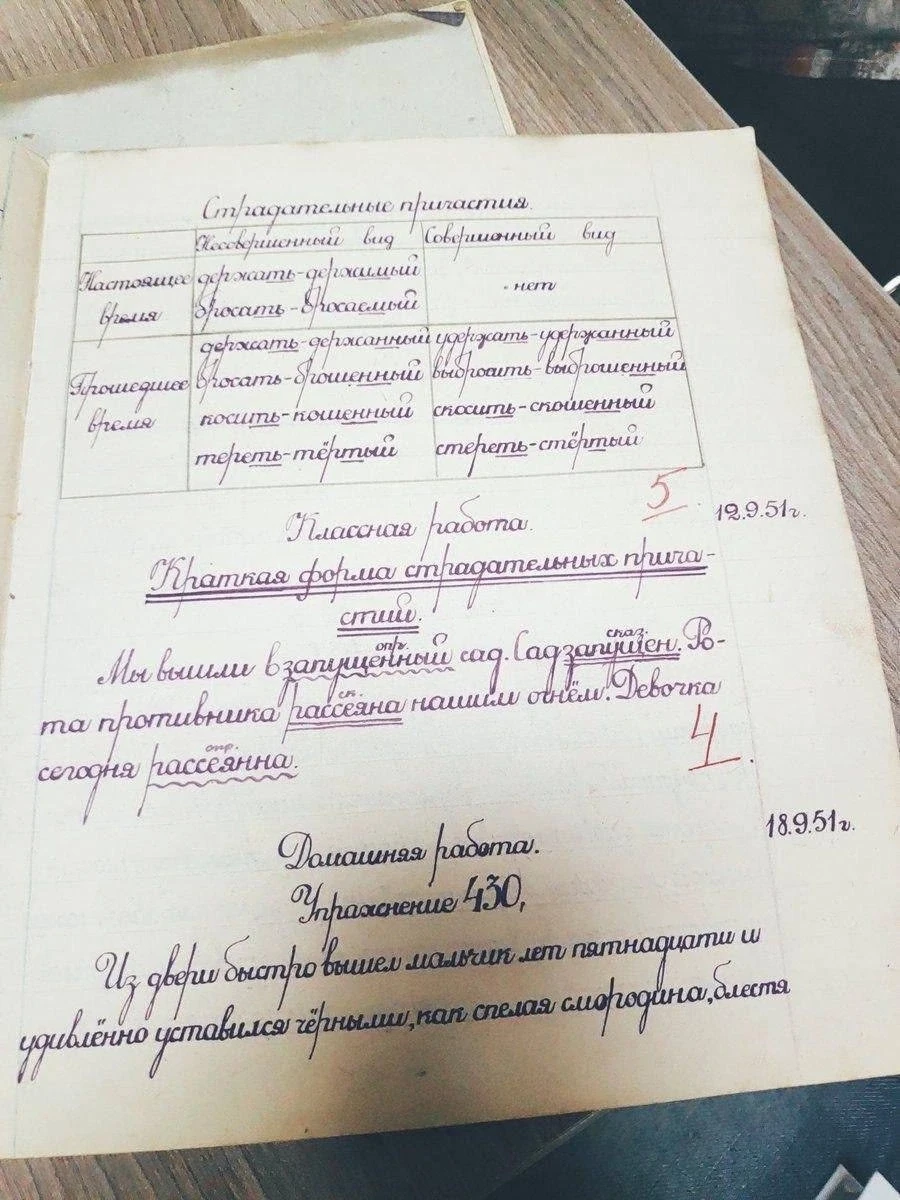 Страдательные причастия.
Несовершенный вид Совершенный вид
Настоящее время
держать-держимый
бросать-бросаемый
нет
Прошедшее время
держать-держанный
бросать-брошенный
косить-кошенный
тереть-тёртый
удержать-удержанный
выбросить-выброшенный
скосить-скошенный
стереть-стёртый
5
12.9.51г.
Классная работа.
Краткая форма страдательных прича-
стий.
опр. сказ.
Мы вышли в запущенный сад. Сад запущен. Ро-
ск.
та противника рассеяна нашим огнём. Девочка
опр.
сегодня рассеянна.
4
18.9.51г.
Домашняя работа.
Упражнение 430,
Из двери быстро вышел мальчик лет пятнадцати и
удивлённо уставился чёрными, как спелая смородина, блестя